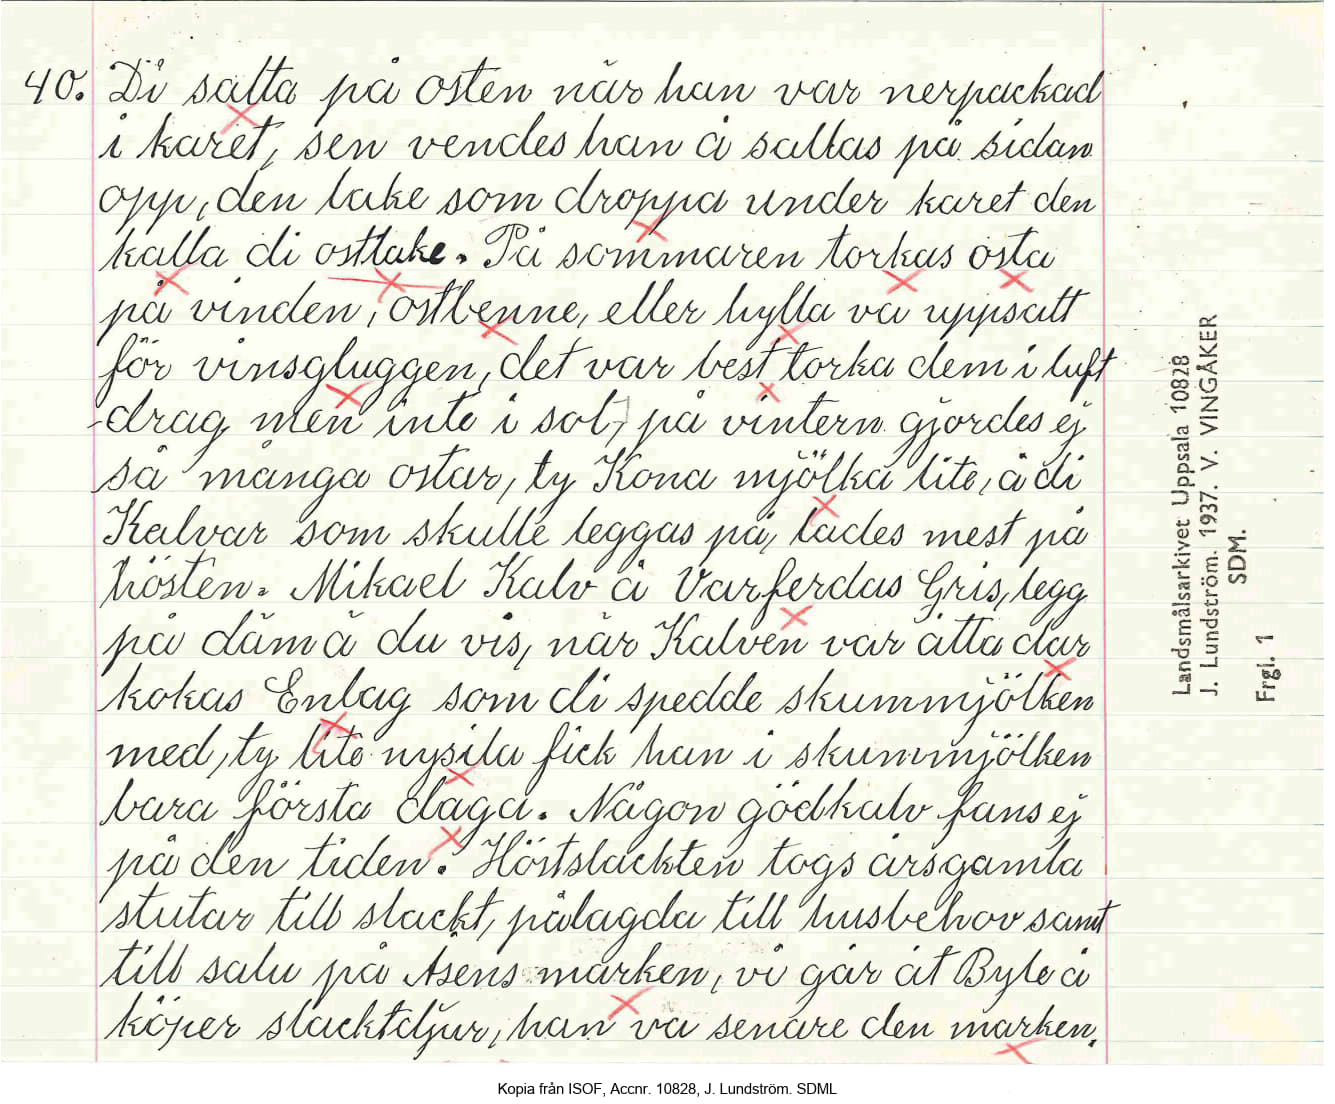 40. Di salta på osten när han var nerpackad
i karet, sen vendes han å saltas på sidan
opp, den lake som droppa under karet den
kalla di ostlake. På sommaren torkas osta
på vinden, ostbenne, eller hylla va uppsatt
för vinsgluggen, det var best torka dem i luft
-drag men inte i sol, på vintern gjordes ej
så många ostar, ty Kona mjölka lite, å di
Kalvar som skulle leggas på, lades mest på
hösten. Mikael Kalv å Varferdas Gris, legg
på däm å du vis, när Kalven var åtta dar
kokas Enlag som di spedde skummjölken
med, ty lite nysila fick han i skummjölken
bara första daga. Någon gödkalv fans ej
på den tiden. Höstslackten togs årsgamla
stutar till slackt, pålagda till husbehov samt
till salu på Åsens marken, vi går åt Byle å
köper slacktdjur, han va senare den marken.
Landsmålsarkivet Uppsala 10828
J. Lundström. 1937. V. VINGÅKER
SDM.
Frgl. 1
Kopia från ISOF, Accnr. 10828, J. Lundström. SDML